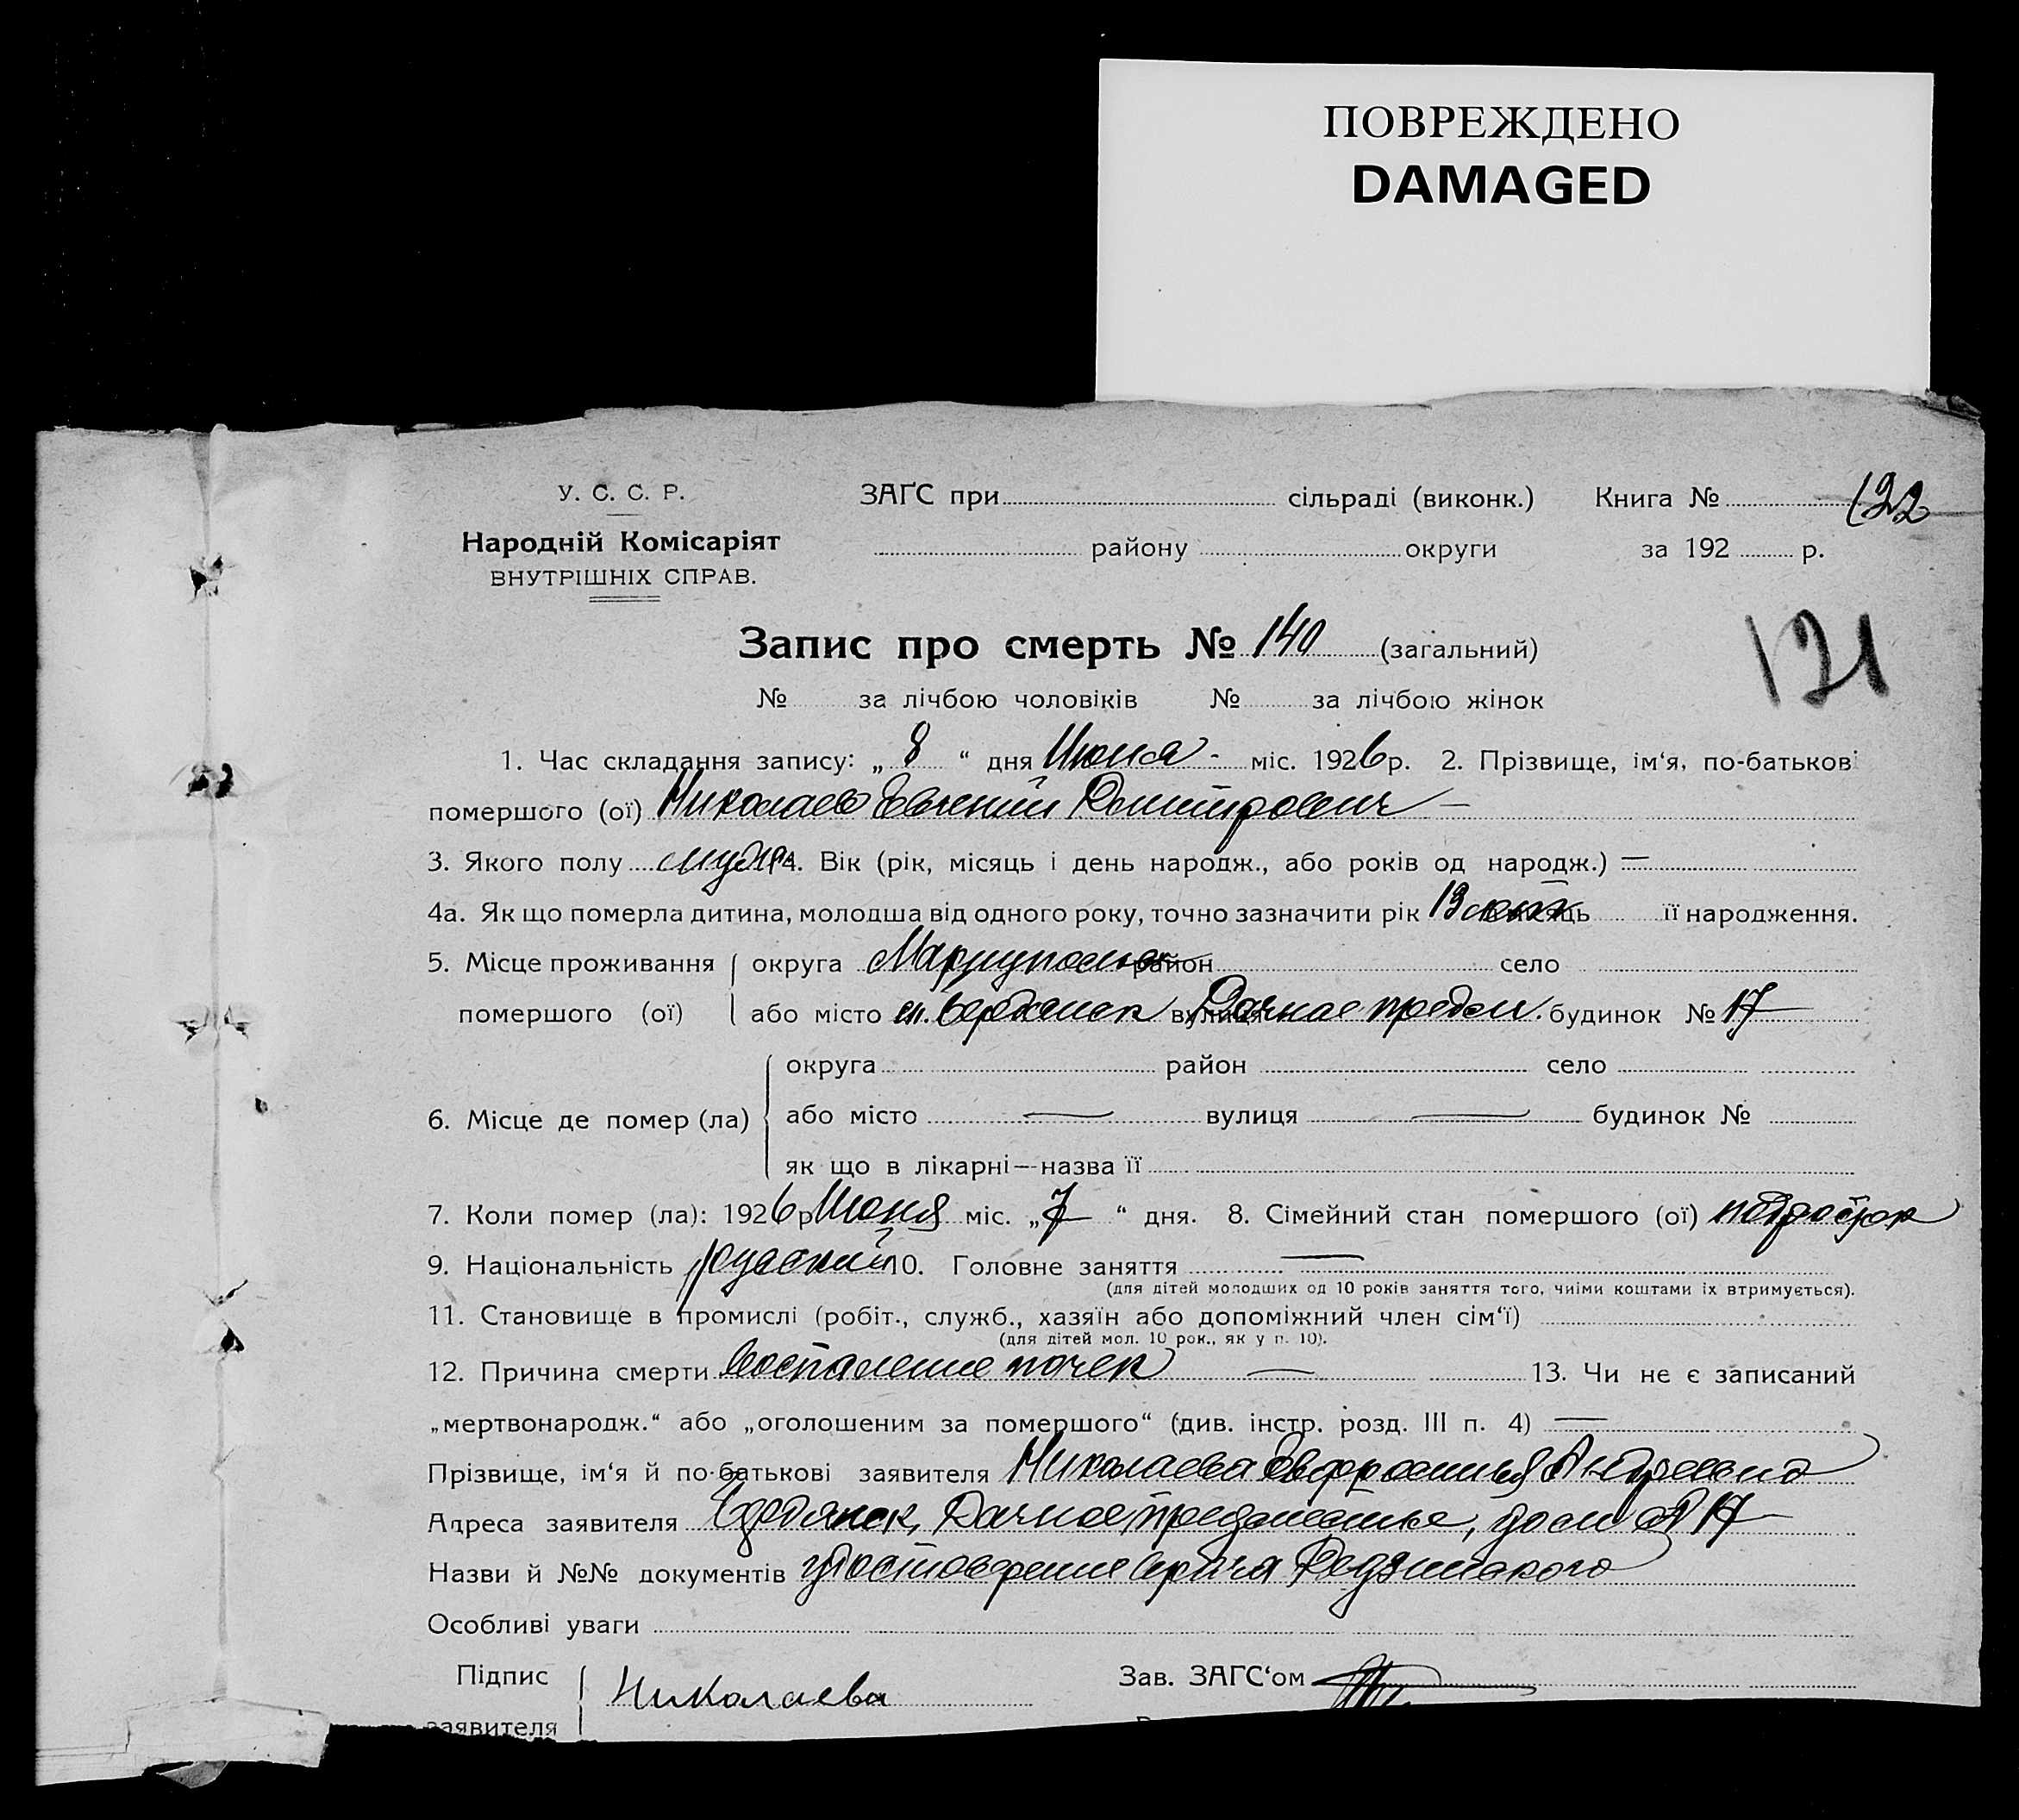 ПОВРЕЖДЕНО
DAMAGED
У. С. С. Р.
Народній Комісаріят
ВНУТРІШНІХ СПРАВ.
ЗАҐС при сільраді (виконк.) Книга № 122
району округи за 192 р.
Запис про смерть № 140 (загальний)
121
№ за лічбою чоловіків № за лічбою жінок
1. Час складання запису: „ 8 “ дня Июня - міс. 1926 р. 2. Прізвище, ім‘я, по-батькові
помершого (ої) Николаев Евгений Димитрович —
3. Якого полу муж. 4. Вік (рік, місяць і день народж., або років од народж.) —
4а. Як що померла дитина, молодша від одного року, точно зазначити рік 13 лет місяць її народження.
5. Місце проживання округа Мариупольск район село
помершого (ої) або місто м. Бердянск вулиця Дачное предм. будинок № 17
округа район село
6. Місце де помер (ла) або місто — вулиця — будинок №
як що в лікарні—назва її
7. Коли помер (ла): 1926 р Июня міс. „ 7 “ дня. 8. Сімейний стан помершого (ої) подросток
9. Національність русский 10. Головне заняття —
(для дітей молодших од 10 років заняття того, чиїми коштами їх втримується).
11. Становище в промислі (робіт., служб., хазяїн або допоміжний член сім‘ї)
(для дітей мол. 10 рок., як у п. 10).
12. Причина смерти Воспаление почек — 13. Чи не є записаний
„мертвонародж.“ або „оголошеним за помершого“ (див. інстр. розд. III п. 4) —
Прізвище, ім‘я й по-батькові заявителя Николаева Евфросинья Андреевна
Адреса заявителя Бердянск, Дачное предместье, дом № 17
Назви й №№ документів удостоверение врача
Особливі уваги
Підпис Николаева Зав. ЗАГС‘ом
заявителя